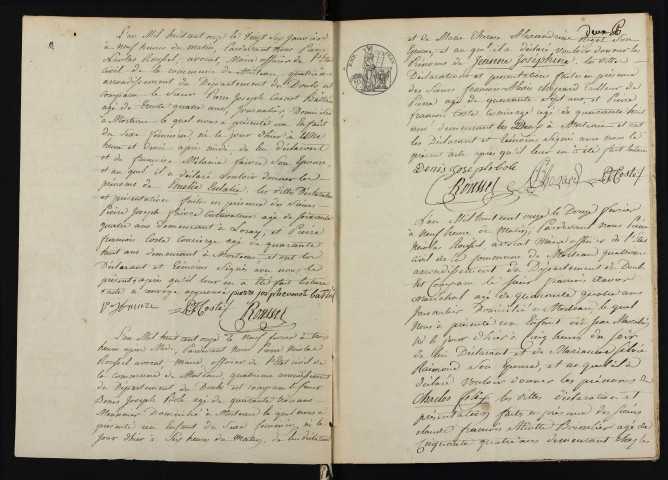 L'an Mil huit cent onze le vingt six janvier
à neuf heures du matin, Pardevant Nous Pierre
Nicolas Roussel, avocat, Maire officier de l'état
civil de la commune de Morteau quatrième
arrondissement du Département du Doubs est
comparu le Sieur Pierre Joseph Cuenot
agé de trente quatre ans Journalier, Domicilié
à Morteau lequel nous a présenté un Enfant
du Sexe féminin, né le jour d'hier à Une
heure et demie après midi de lui déclarant
et de françoise Mélanie faivre Son Epouse
et auquel il a déclaré vouloir donner les
prénoms de Emelie Eulalie, les dittes Déclaration
et présentation faites en présence des Sieurs
Pierre Joseph faivre Cultivateur agé de soixante
quatre ans demeurant à Loray, et Pierre
francois Coste Concierge agé de quarante
huit ans demeurant à Morteau, et ont les
Déclarant et Témoins Signés avec nous le
présent, après qu'il leur en a été fait lecture
pierre joseph cuenot
P. j. faivre P F Coste Roussel
L'an Mil huit cent onze le neuf fevrier à trois
heures après Midi, Pardevant Nous Pierre Nicolas
Roussel avocat, maire, officier de l'Etat civil de
la commune de Morteau, quatrième arrondissement
du Département du Doubs est comparu le Sieur
Denis Joseph Bole agé de quarante trois ans
Meunier Domicilié à Morteau lequel nous a
présenté un Enfant du Sexe féminin, né le
jour d'hier à Six heures du Matin, de lui déclarant
deux
et de Marie Therese Alexandrine Son
Epouse, et au qu'il a déclaré vouloir donner les
Prénoms de Jeanne Josephine les dittes
Déclaration et présentation faites en présence
des Sieurs francois Tailleur de
Pierre agé de quarante Sept ans, et Pierre
francois Coste Concierge agé de quarante huit
ans demeurant les Deux à Morteau, et ont
les Déclarant et témoins Signés avec nous le
présent acte après qu'il leur en a été fait lecture
Denis Joseph bole
Roussel P F Coste
L'an Mil huit cent onze le Douze fevrier
à neuf heures du Matin, Pardevant Nous Pierre
Nicolas Roussel, avocat Maire officier de l'état
civil de la Commune de Morteau quatrième
arrondissement du Département du Doubs
est Comparu le Sieur francois Xavier
Marechal agé de quarante quatre ans
Domicilié à Morteau, lequel
Nous a présenté un Enfant du sexe Masculin
né le jour d'hier à Cinq heures du Soir
de lui Déclarant et de Marianne
Raimond Son Epouse, et auquel il a
déclaré vouloir donner les prénoms de
Charles les dittes déclaration et
présentation faites en présence des Sieurs
claude francois Miotte agé de
Cinquante quatre ans demeurant chez les